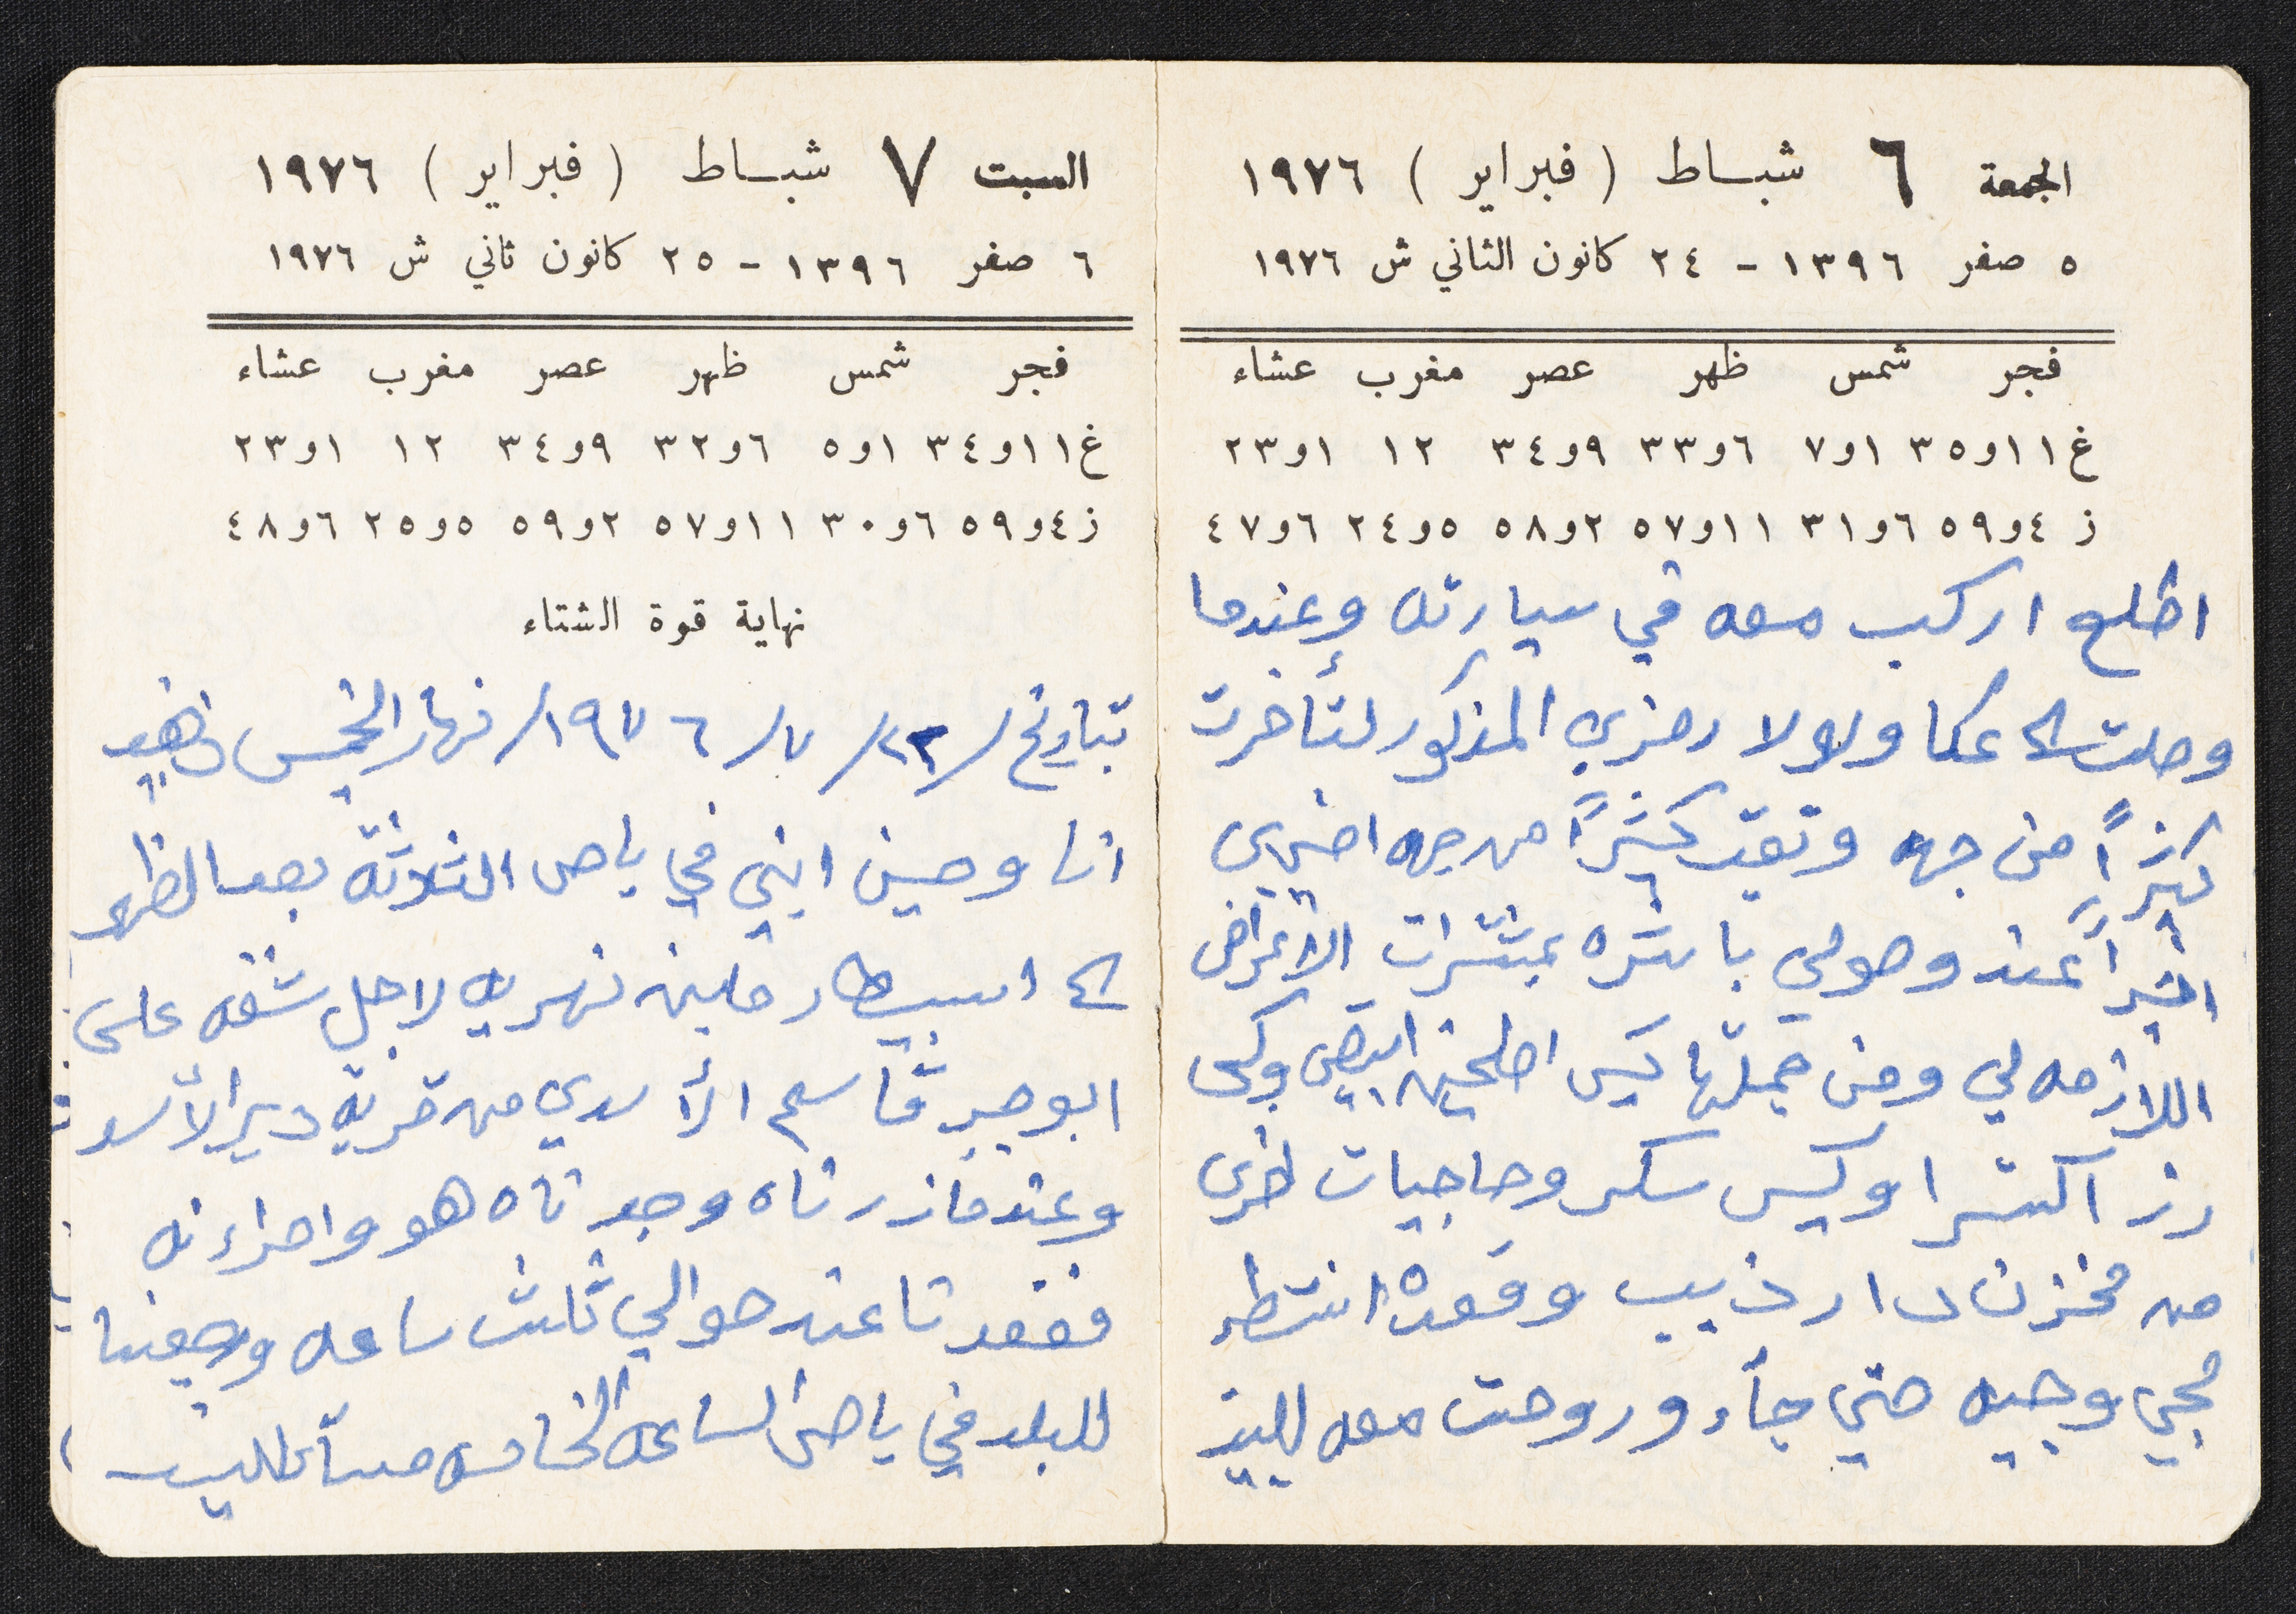 الجمعة ٦ شبـاط ( فبراير ) ١٩٧٦
٥ صفر ١٣٩٦ - ٢٤ كانون الثاني ش ١٩٧٦
فجر شمس ظهر عصر مغرب عشاء
غ ١١و٣٥ ١و٧ ٦و٣٣ ٩و٣٤ ١٢ ١و٢٣
ز ٤و٥٩ ٦و٣١ ١١و٥٧ ٢و٥٨ ٥و٢٤ ٦و٤٧
اطلع اركب معه في سيارته وعندما
وصلت الى عكا ولولا رمزي المذكور لتأخرت
كثيراً من جهه وتعبت كثيراً من جهه اخرى
اخيراً عند وصولي باشره بمشترات الاغراض
اللازمه لي ومن جملتها كيس اطحين ابيض وكيس
رز اكسترا وكيس سكر وحاجيات اخرى
من مخزن دار ذيب وقعدة انتظر
مجي وجيه حتي جآء وروحت معه للبيت
السبت ٧ شبـاط ( فبراير ) ١٩٧٦
٦ صفر ١٣٩٦ - ٢٥ كانون ثاني ش ١٩٧٦
فجر شمس ظهر عصر مغرب عشاء
غ ١١و٣٤ ١و٥ ٦و٣٢ ٩و٣٤ ١٢ ١و٢٣
ز ٤و٥٩ ٦و٣٠ ١١و٥٧ ٢و٥٩ ٥و٢٥ ٦و٤٨
نهاية قوة الشتاء
بتاريخ /٢٢/ ٧/ ١٩٧٦/ نهار الخميس ذهبت
انا وحسين ابني في باص الثلاثة بعد الظهر
الى اسبيطار نهريه لاجل شقه على
ابو جبر قاسم الأسدي من قرية دير الأسد
وعندما زرناه وجدناه هو وامراءته
فقعدنا عنده حوالي ثلث ساعه ورجعنا
للبلد في باص الساعه الخامسه مسآ للبيت